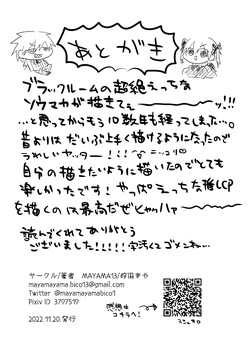 あとがき
ブラックルームの超絶えっちな
ソウマカが描きてぇ〜〜ッ…!!
…と思ってからもう10数年も経ってしまった。
昔よりはだいぶ上手く描けるようになったので
うれしいヤッター!!!ニッコリ
自分の描きたいように描いたのでとても
楽しかったです!やっぱえっちな推しCP
を描くのは最高だぜヒャッハァー
読んでくれてありがとう
ございました!!!!!字汚くてゴメンね…
サークル/著者 MAYAMA13/
mayamayama.bico13@gmail.com
Twitter @mayamayamabico1
Pixiv ID 3797519
2022.11.20.発行
感想は
コチラへ!